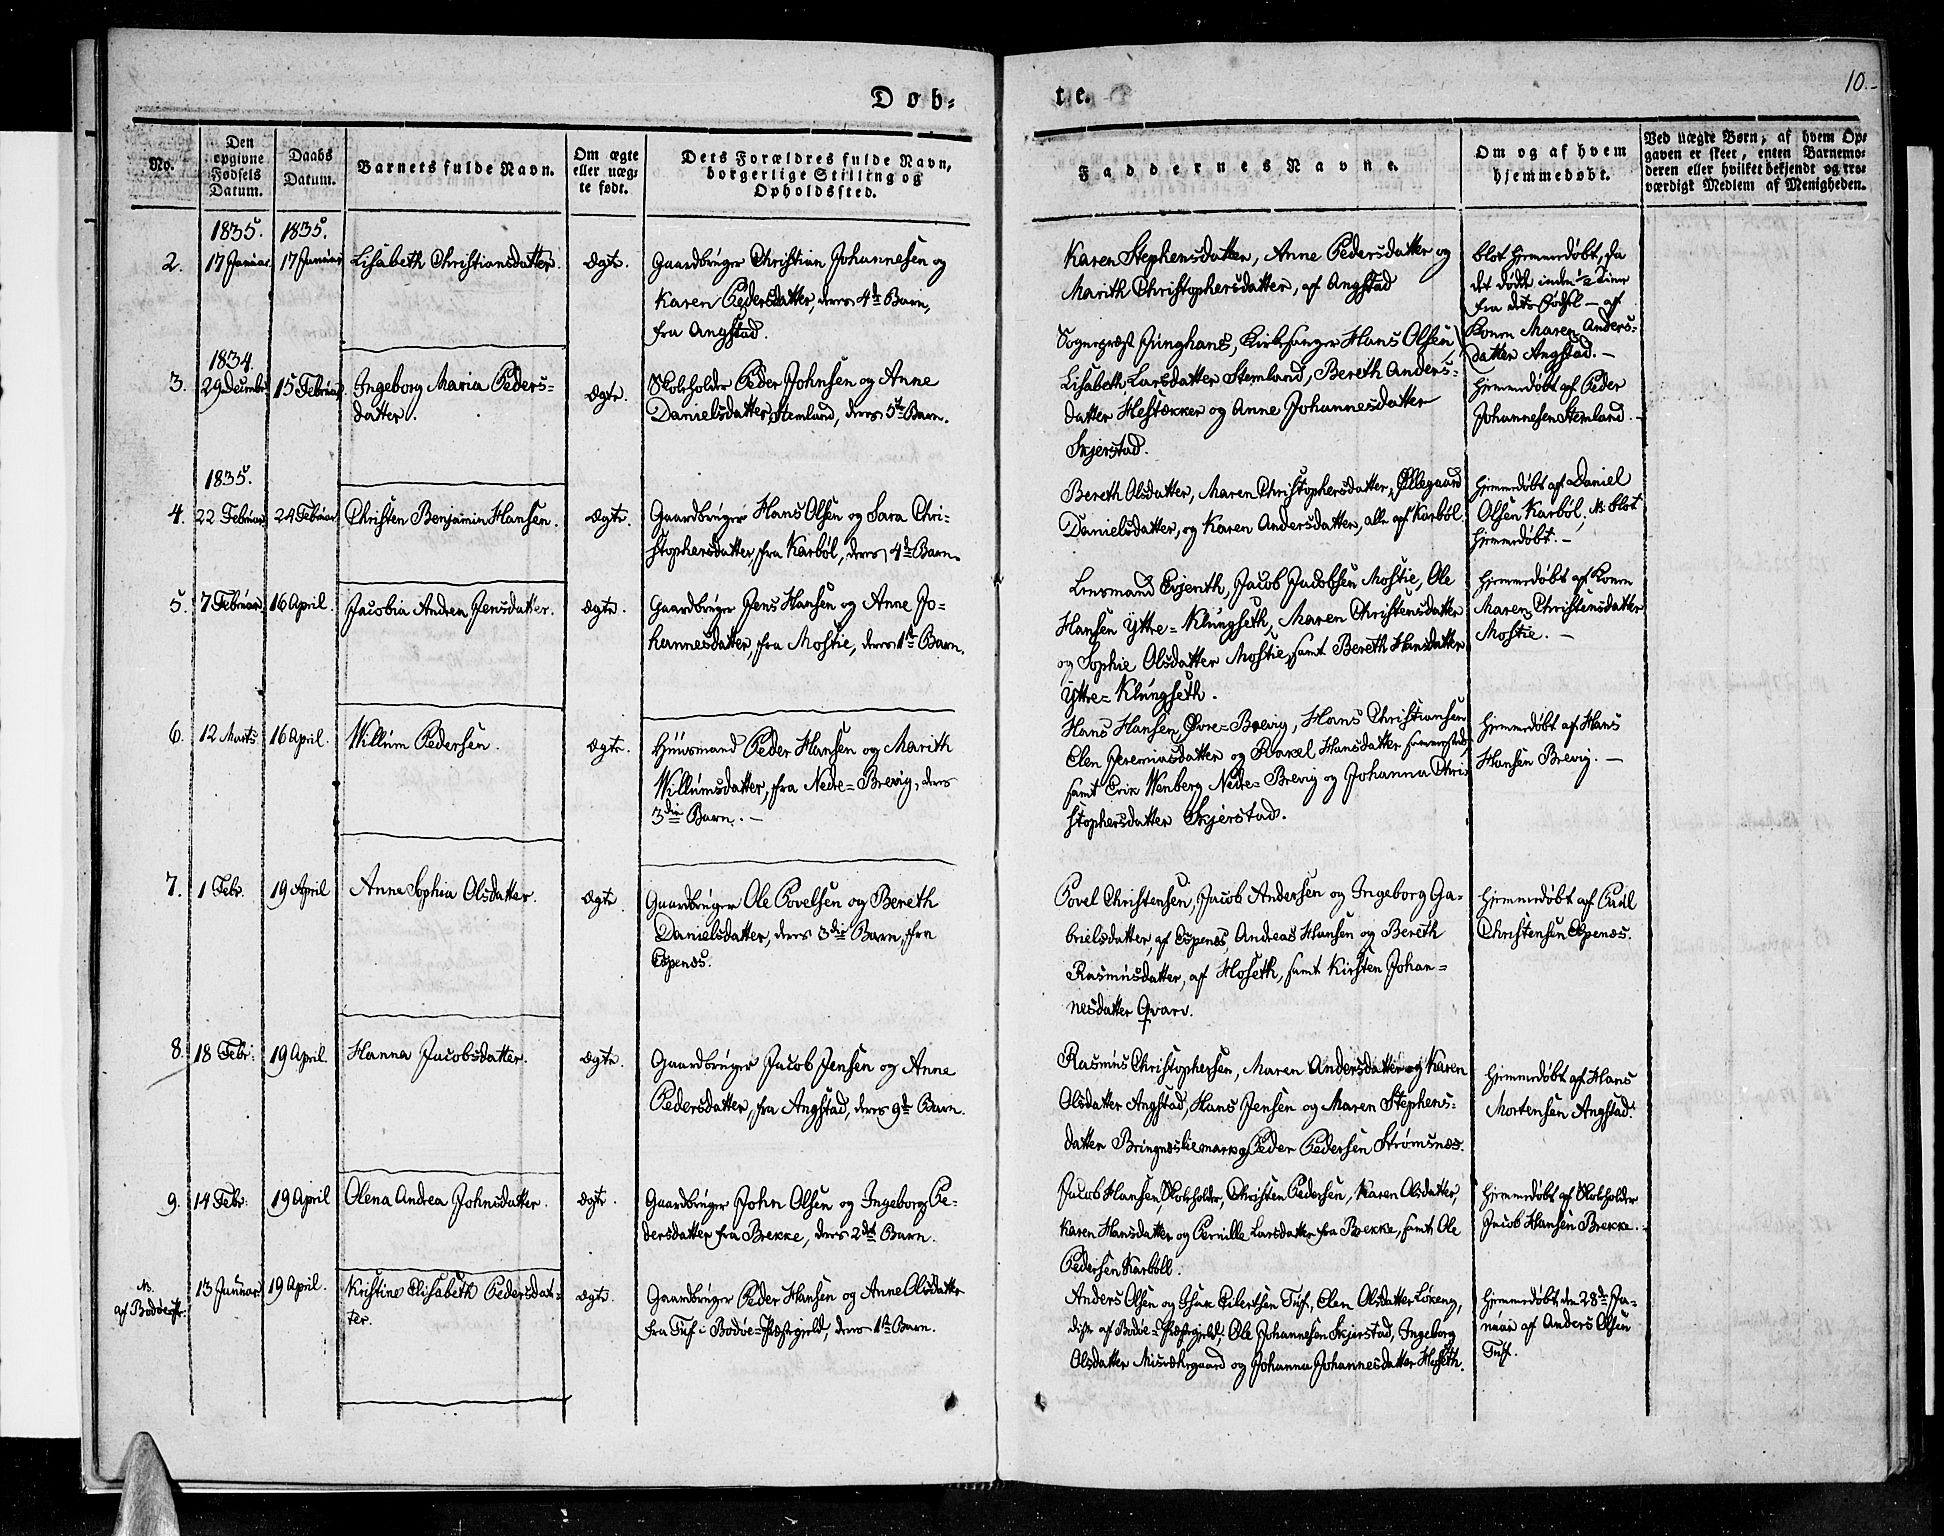 10.
Døb-
te.
No.
Den opgivne Fødsels Datum.
Daabs Datum.
Barnets fulde Navn.
Om ægte eller uægte født.
Dets Forældres fulde Navn, borgerlige Stilling og Opholdssted.
Faddernes Navne.
Om og af hvem hjemmedøbt.
Ved uægte Børn, af hvem Opgaven er skeet, enten Barnemoderen eller hvilket bekjendt og troværdigt Medlem af Menigheden.
1835. 1835.
2. 17 Januar 17 Januar Lisabeth Christiansdatter. Ægte.
Gaardbruger Christian Johannesen og
Karen Pedersdatter, deres 4de Barn,
fra Angstad.
Karen Stephensdatter, Anne Pedersdatter og
Marith Christophersdatter, af Angstad
blot hjemmedøbt, da
det døde inden ½ Time
fra dets Fødsel – af
Konen Maren Anders-
datter Angstad. –
1834.
3. 29 December 15 Februar Ingeborg Maria Peders-
datter. Ægte.
Skoleholder Peder Johnsen og Anne
Danielsdatter, Stemland, deres 5te Barn.
Sognepræst Junghans, Kirkesanger Hans Olsen
Lisabeth Larsdatter Stemland, Bereth Anders-
datter Hestækker og Anne Johannesdatter
Skjerstad.
hjemmedøbt af Peder
Johannesen Stemland. –
1835.
4. 22 Februar 24 Februar Christen Benjamin Hansen. Ægte.
Gaardbruger Hans Olsen og Sara Chri-
stophersdatter, fra Karbøl, deres 4de Barn.
Bereth Olsdatter, Maren Christophersdatter, Øllegaard
Danielsdatter, og Karen Andersdatter, alle af Karbøl.
hjemmedøbt af Daniel
Olsen Karbøl, NB. blot
hjemmedøbt. –
5. 7 Februar 16 April. Jacobia Andrea Jensdatter. Ægte.
Gaardbruger Jens Hansen og Anne Jo-
hannesdatter, fra Mostie, deres 1te Barn.
Lensmand Evjenth, Jacob Jacobsen Mostie, Ole
Hansen Yttre-Klungseth, Maren Christensdatter
og Sophie Olsdatter Mostie, samt Bereth Hansdatter
Yttre-Klungseth.
hjemmedøbt af Konen
Maren Christensdatter
Mostie. –
6. 12 Marts 16 April. Willum Pedersen. Ægte.
Huusmand Peder Hansen og Marith
Willumsdatter, fra Nedre-Brevig, deres
3die Barn. –
Hans Hansen Øvre-Brevig, Hans Christiansen
Elen Jeremiasdatter og Rakel Hansdatter sammesteds
samt Erik Wenberg Nedre-Brevig og Johanna Chri-
stophersdatter Skjerstad.
hjemmedøbt af Hans
Hansen Brevig. –
7. 1 Febr. 19 April Anne Sophia Olsdatter. Ægte.
Gaardbruger Ole Povelsen og Bereth
Danielsdatter, deres 3die Barn, fra
Espenæs.
Povel Christensen, Jacob Andersen og Ingeborg Ga-
brielsdatter, af Espenæs, Andreas Hansen og Bereth
Rasmusdatter, af Hoseth, samt Kirsten Johan-
nesdatter Qvarv.
hjemmedøbt af Paul
Christensen Espenæs.
8. 18 Febr. 19 April. Hanna Jacobsdatter. Ægte.
Gaardbruger Jacob Jensen og Anne
Pedersdatter, fra Angstad, deres 9de Barn.
Rasmus Christophersen, Maren Andersdatter og Karen
Olsdatter Angstad, Hans Jensen og Maren Stephens-
datter Bringneslie mark og Peder Pedersen Strømsnæs.
hjemmedøbt af Hans
Mortensen Angstad.
9. 14 Febr. 19 April Olena Andrea Johnsdatter. Ægte.
Gaardbruger John Olsen og Ingeborg Pe-
dersdatter fra Brekke, deres 2det Barn.
Jacob Hansen, Skoleholder, Christen Pedersen, Karen Olsdatter,
Karen Hansdatter og Pernille Larsdatter fra Brekke, samt Ole
Pedersen Karbøll.
hjemmedøbt af Skoleholder
Jacob Hansen Brekke. –
N.
af Bodøe
13 Januar 19 April. Kristine Elisabeth Pedersdat-
ter. Ægte.
Gaardbruger Peder Hansen og Anne Olsdatter
fra Tuf i Bodøe-Præstegjeld, deres 1te Barn.
Anders Olsen og Isak Eilertsen Tuf, Elen Olsdatter Løkeng,
disse af Bodøe-Præstegjeld. Ole Johannesen Skjerstad, Ingeborg
Olsdatter Misværgaard og Johanna Johannesdatter Hoseth.
hjemmedøbt den 28de Ja-
nuar af Anders Olsen
Tuf.